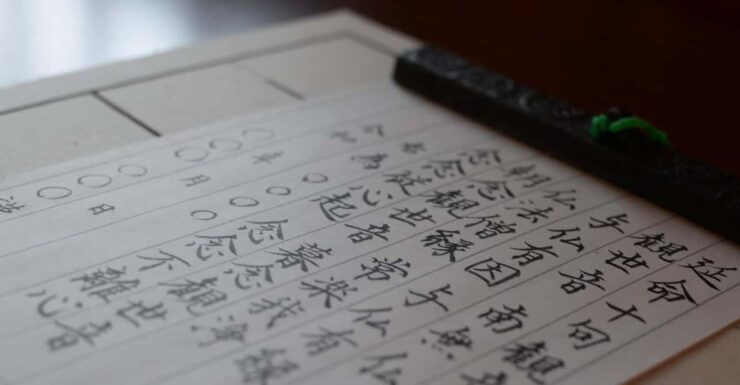 延命十句観音
観世音南無仏
与仏有因与仏有縁
仏法僧縁常楽我浄
朝念観世音暮念観世音
念念従心起念念不離心
右為〇〇〇〇
令和 年 月 日
〇〇〇〇〇〇